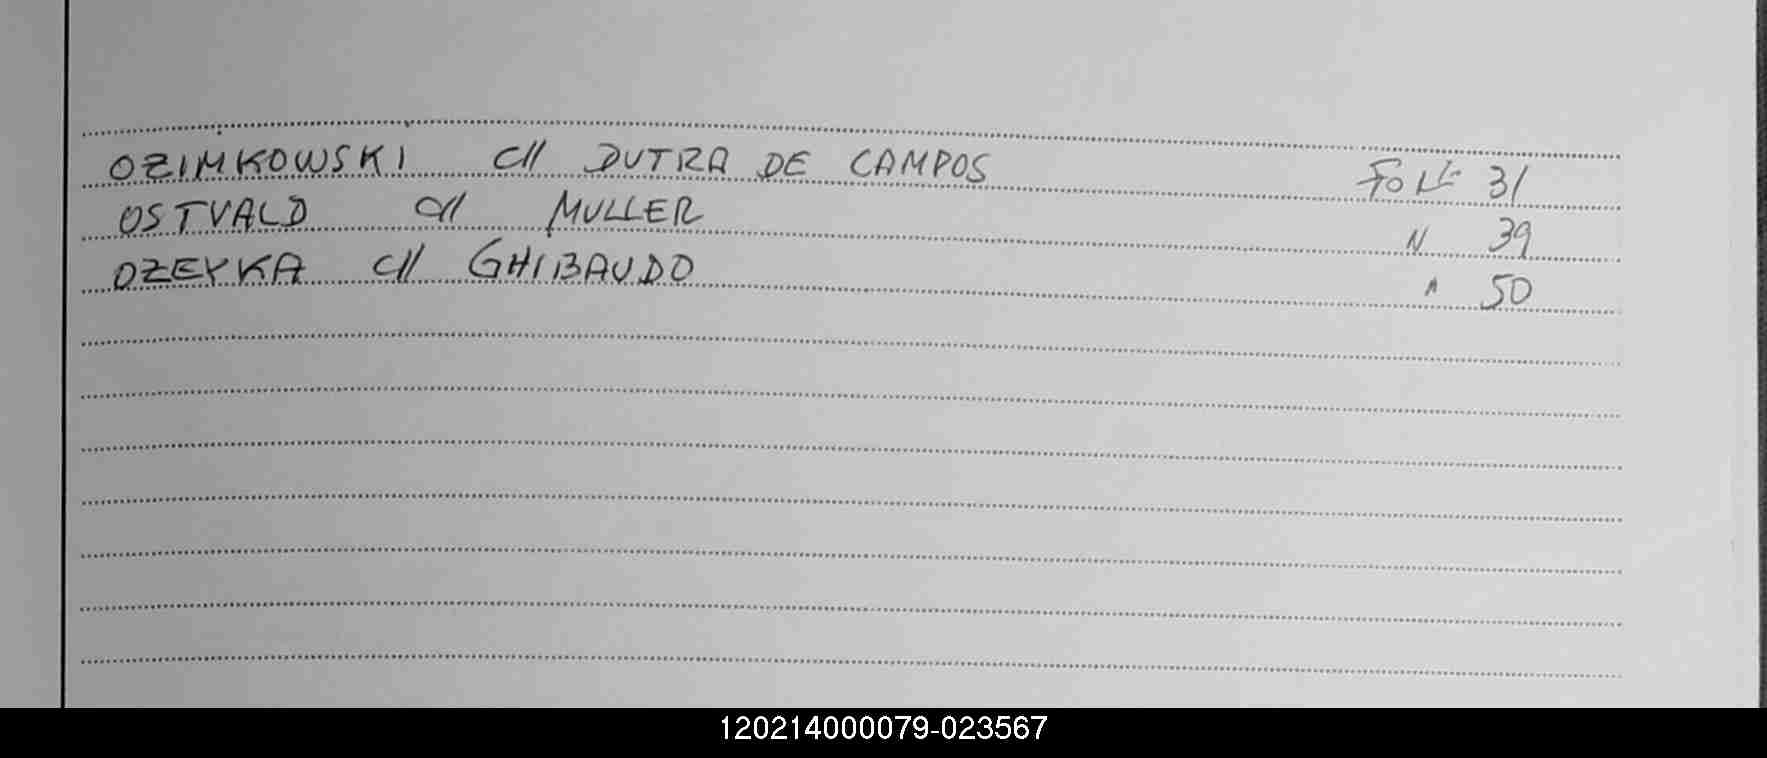 OZIMKOWSKI C// DUTRA DE CAMPOS FOLº 31
OSTVALD C// MULLER " 39
OZEYKA C// GHIBAUDO " 50
120214000079-023567